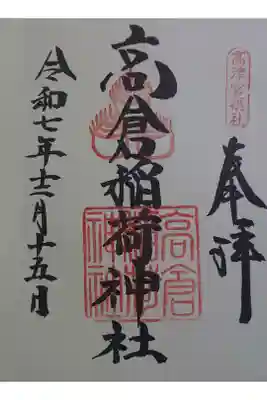 高津宮摂社
奉拝
高倉稲荷神社
高倉稲荷神社
令和七年十二月十五日